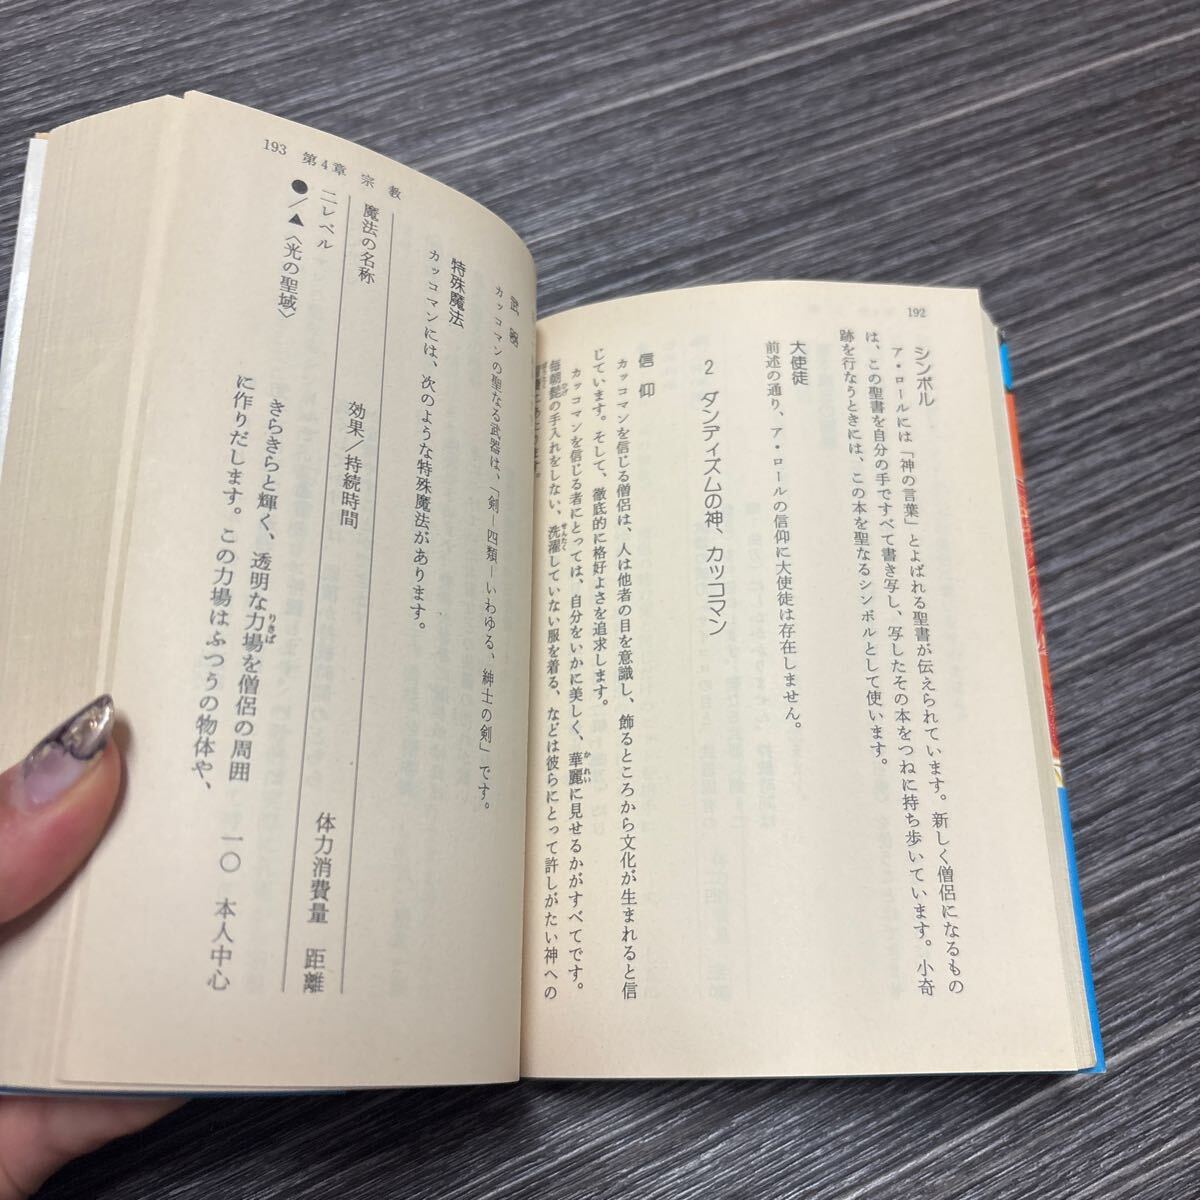 192
シンボル
ア・ロールには「神の言葉」とよばれる聖書が伝えられています。新しく僧侶になるもの
は、この聖書を自分の手ですべて書き写し、写したその本をつねに持ち歩いています。小奇
跡を行なうときには、この本を聖なるシンボルとして使います。
大使徒
前述の通り、ア・ロールの信仰に大使徒は存在しません。
2 ダンディズムの神、カッコマン
信仰
カッコマンを信じる僧侶は、人は他者の目を意識し、飾るところから文化が生まれると信
じています。そして、徹底的に格好よさを追求します。
カッコマンを信じる者にとっては、自分をいかに美しく、華麗に見せるかがすべてです。
かれい
毎朝髭の手入れをしない、洗濯していない服を着る、などは彼らにとって許しがたい神への
せんたく
193 第4章 宗教
武器
カッコマンの聖なる武器は、「剣―四類―いわゆる、紳士の剣」です。
特殊魔法
カッコマンには、次のような特殊魔法があります。
魔法の名称 効果/持続時間 体力消費量 距離
二レベル
●/▲〈光の聖域〉 きらきらと輝く、透明な力場を僧侶の周囲 一〇 本人中心
りきば
に作りだします。この力場はふつうの物体や、